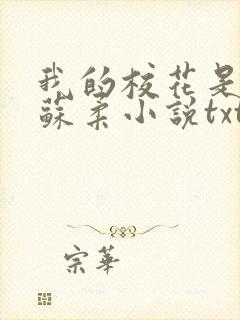 我的校花是
蘇柔小説txt
宗華